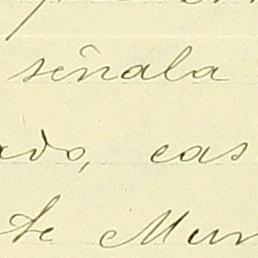 señala
ado, cas
te Mun